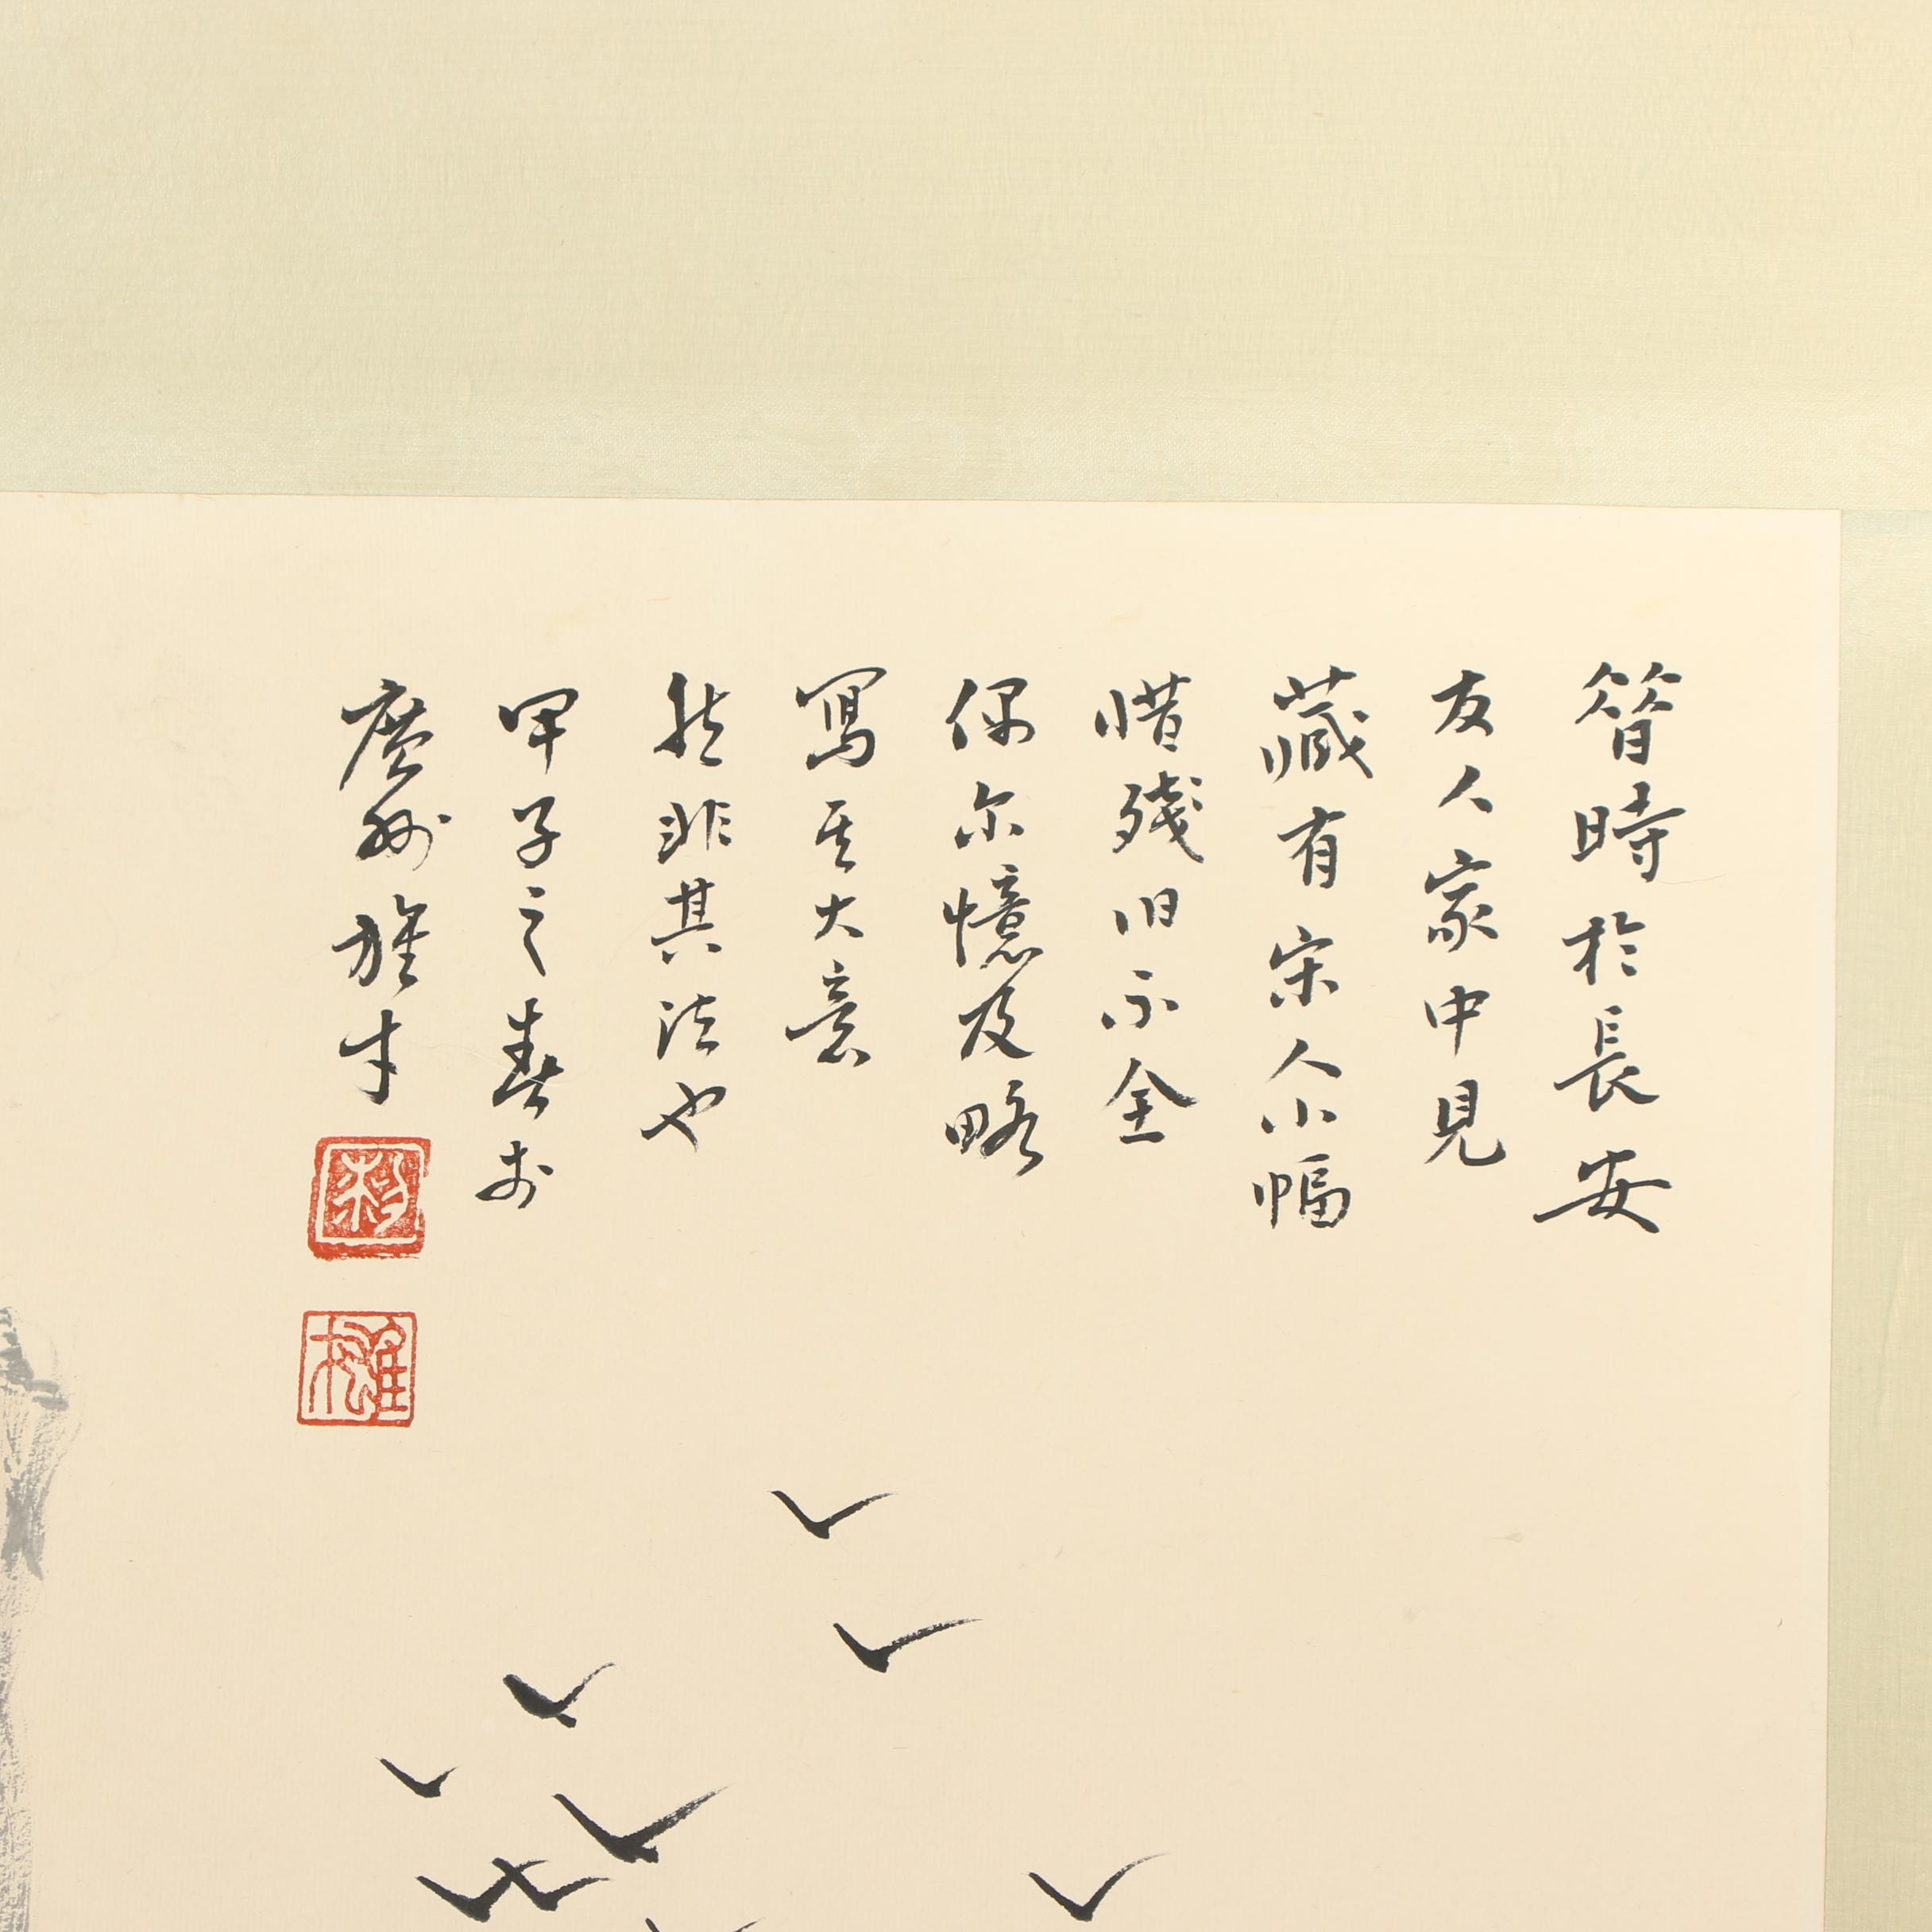 昔時於長安
友人家中見
藏有宋人小幅
惜殘旧不全
偶尔憶及略
寫其大意
然非其法也
甲子之春於
廣州雄才
黎
雄才